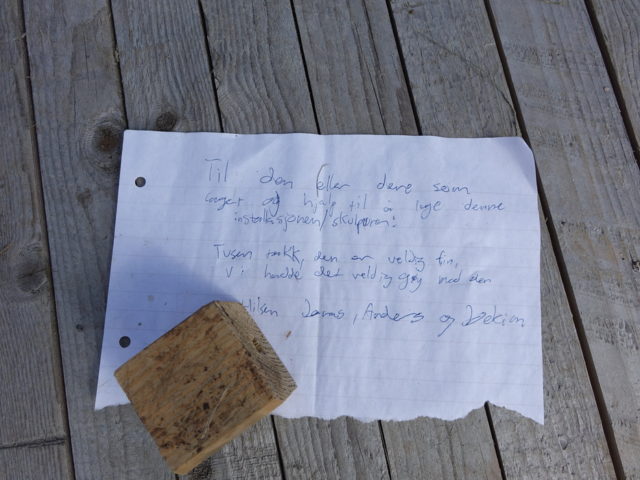 Til den eller dere som
laget og hjalp til å lage denne
installasjonen/skulpturen!
Tusen takk, den er veldig fin,
Vi hadde det veldig gøy med den
Hilsen Jonas, Anders og